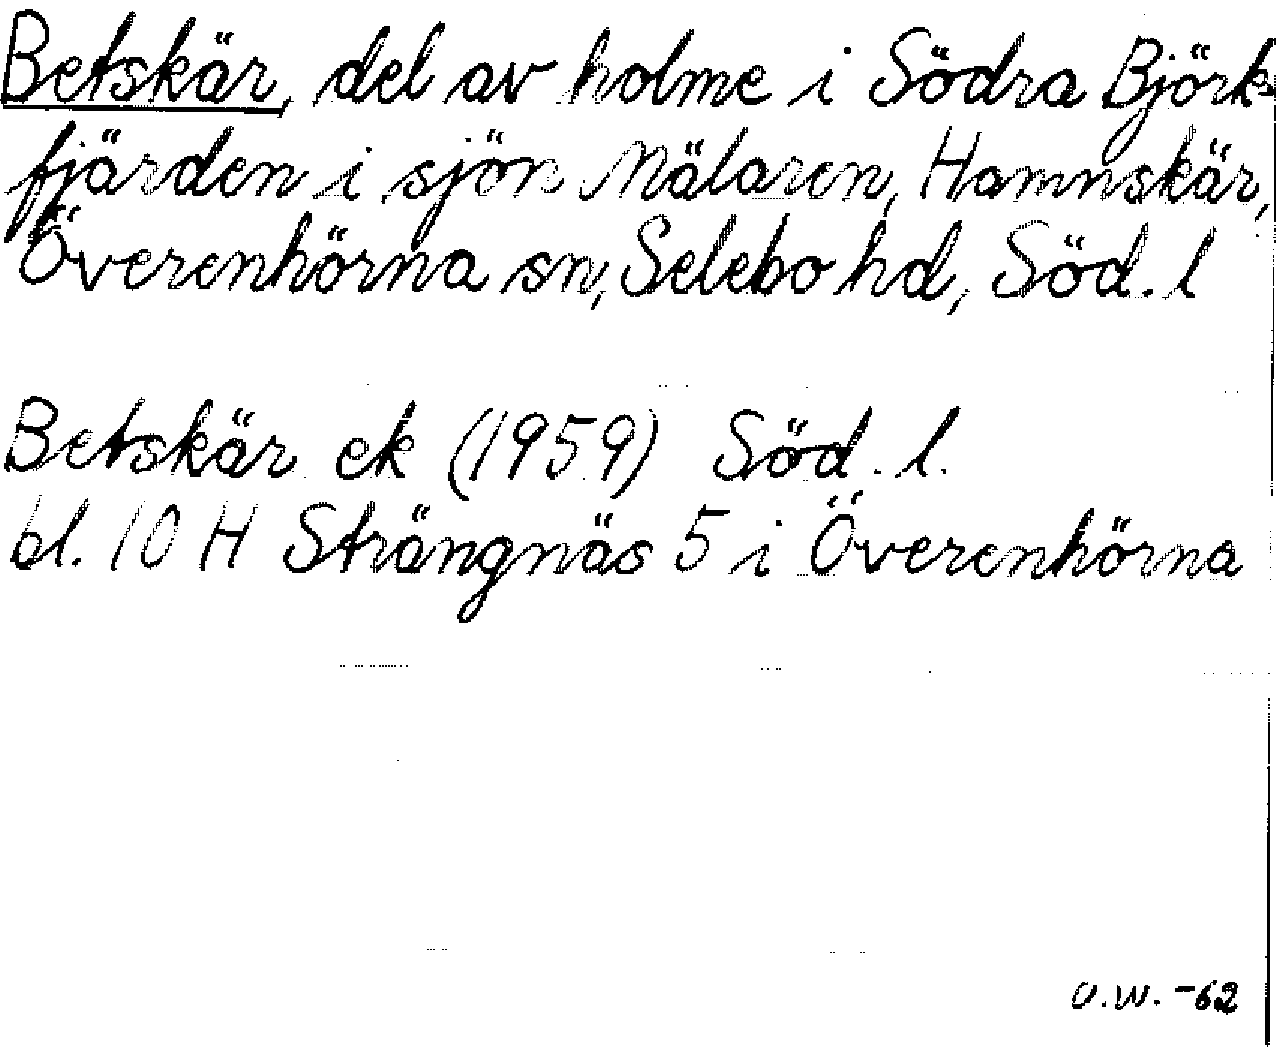 Betskär, del av holme i Södra Björk-
fjärden i sjön Mälaren, Hamnskär,
Överenhörna sn, Selebo hd, Söd. l
Betskär ek (1959) Söd. l.
bl. 10 H Strängnäs 5 i Överenhörna
U.W. -62